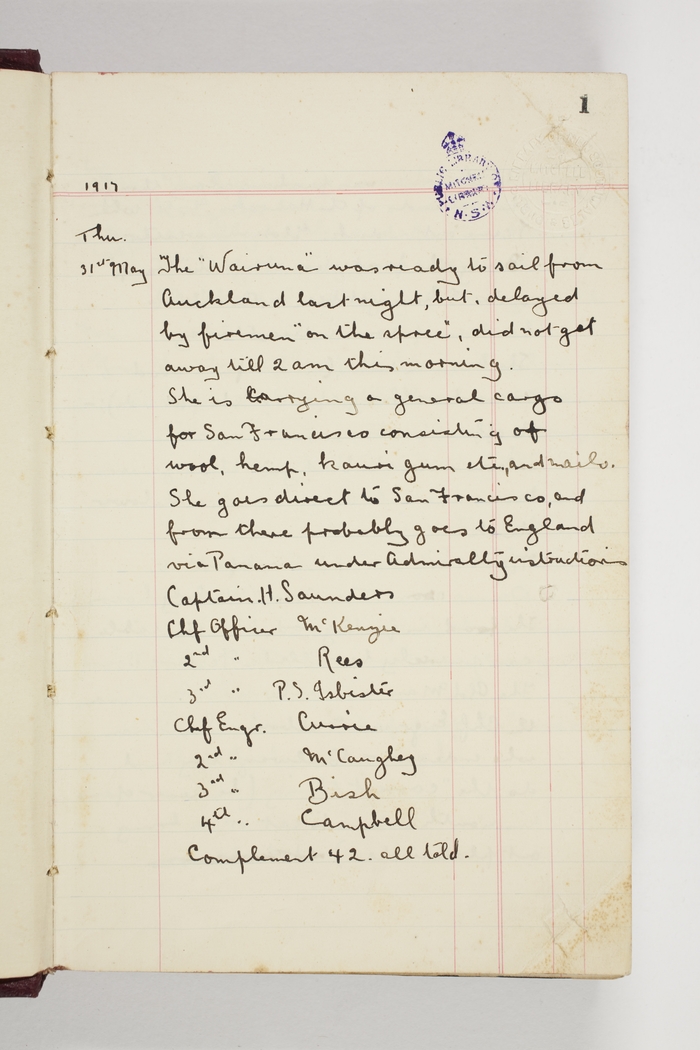 1
PUBLIC LIBRARY OF
MITCHELL
LIBRARY
N.S.W.
1917
Thu.
31st May The "Wairuna" was ready to sail from
Auckland last night, but, delayed
by firemen "on the spree", did not get
away till 2 am this morning.
She is carrying a general cargo
for San Francisco consisting of
wool, hemp, kauri gum etc, and mails.
She goes direct to San Francisco, and
from there probably goes to England
via Panama under Admiralty instructions
Captain. H. Saunders
Chf Officer McKenzie
2nd " Rees
3rd " P.S. Isbister
Chf Engr. Currie
2nd " McCaughey
3rd " Bish
4th " Campbell
Complement 42. all told.